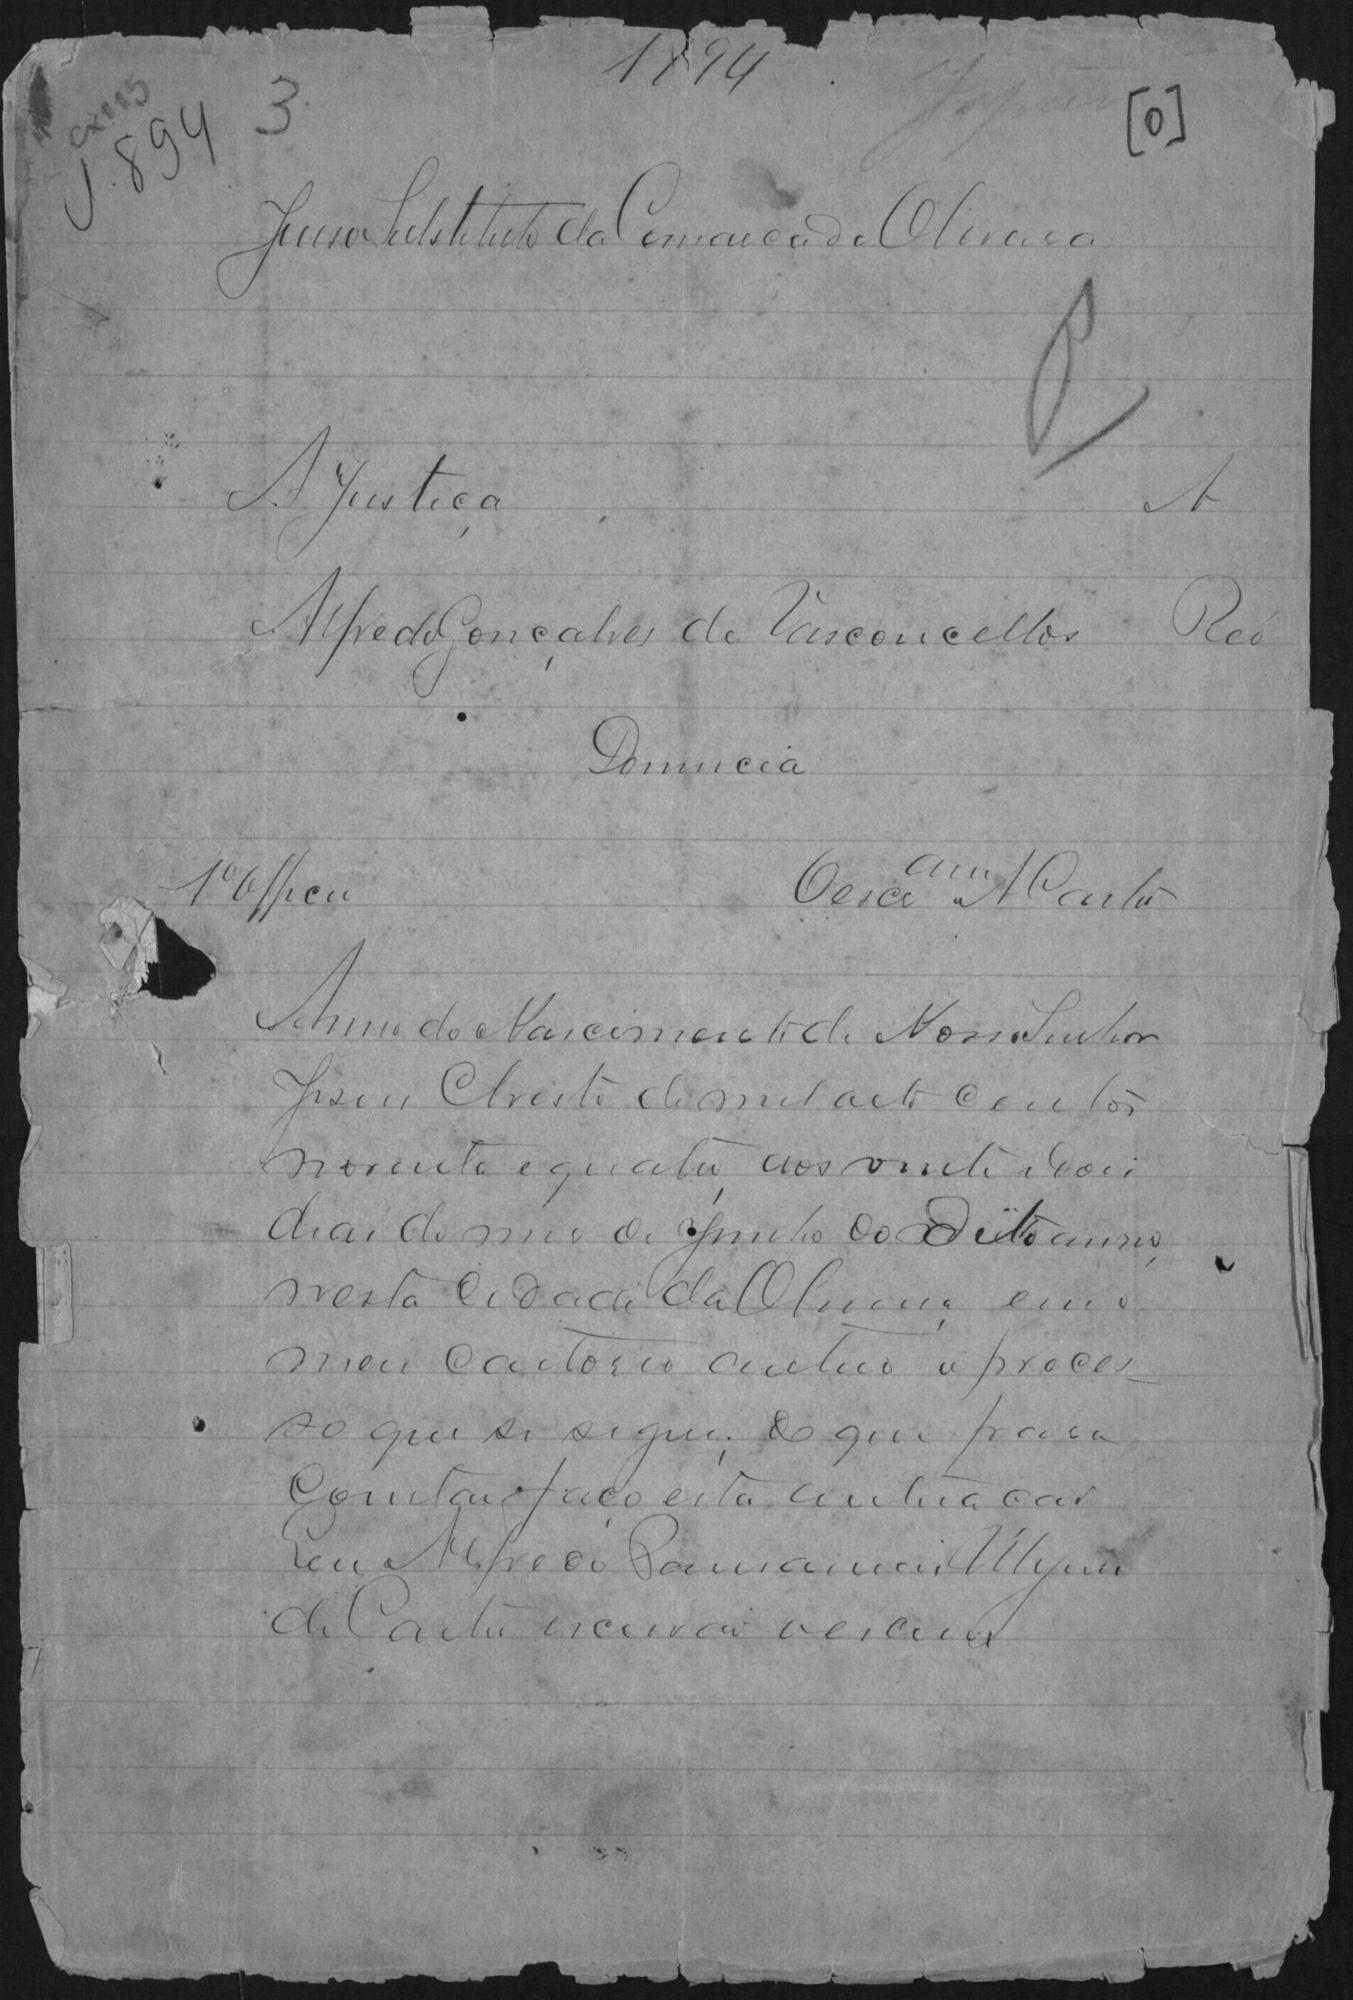 1894
cx 115
J. 894
3
[0]
Juiso Substituto da Comarca de Oliveira
A Justiça A
Alfredo Gonçalves de Vasconcellos Reó
Denuncia
1º Officio Escr.am A Costa
Anno do Nascimento de Nosso Senhor
Jesus Christo de mil oito centos
noventa e quatro, aos vinte e dois
dias do mes de Junho do dito anno,
nesta Cidade da Oliveira, em o
meu Cartorio autuo o proces-
so que se segue; do que para
constar, faço esta autuacão
Eu Alfredo
da Costa escrivão o escrevi